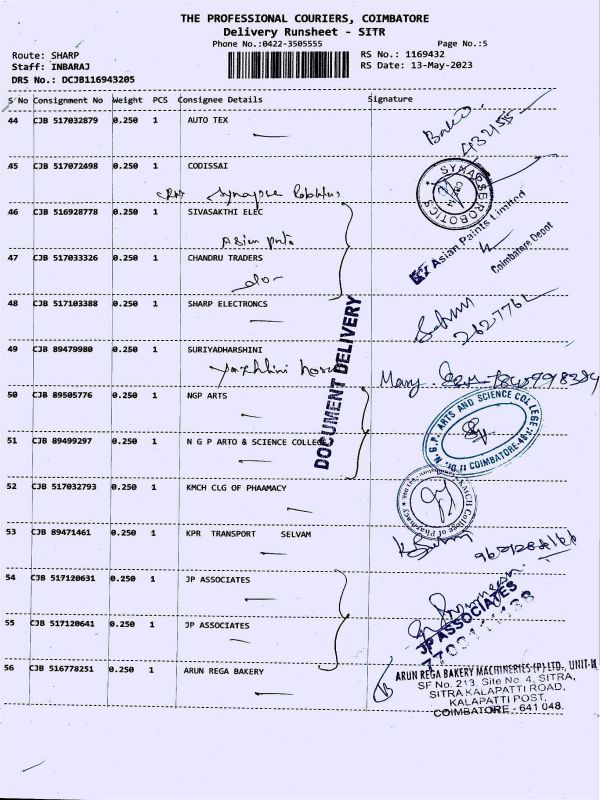 THE PROFESSIONAL COURIERS, COIMBATORE
Delivery Runsheet - SITR
Phone No.:0422-3505555 Page No.:5
Route: SHARP RS No.: 1169432
Staff: INBARAJ RS Date: 13-May-2023
DRS No.: DCJB116943205
S No Consignment No Weight PCS Consignee Details Signature
44 CJB 517032879 0.250 1 AUTO TEX
45 CJB 517072498 0.250 1 CODISSAI
SYNAPSE ROBOTICS
46 CJB 516928778 0.250 1 SIVASAKTHI ELEC
Asian Paints Limited
Coimbatore Depot
47 CJB 517033326 0.250 1 CHANDRU TRADERS
48 CJB 517103388 0.250 1 SHARP ELECTRONCS
DOCUMENT DELIVERY
49 CJB 89479980 0.250 1 SURIYADHARSHINI
Mary
50 CJB 89505776 0.250 1 NGP ARTS
N. G. P. ARTS AND SCIENCE COLLEGE
COIMBATORE-48
51 CJB 89499297 0.250 1 N G P ARTO & SCIENCE COLLEGE
52 CJB 517032793 0.250 1 KMCH CLG OF PHAAMACY
KMCH College of Pharmacy
53 CJB 89471461 0.250 1 KPR TRANSPORT SELVAM
54 CJB 517120631 0.250 1 JP ASSOCIATES
JP ASSOCIATES
55 CJB 517120641 0.250 1 JP ASSOCIATES
56 CJB 516778251 0.250 1 ARUN REGA BAKERY
ARUN REGA BAKERY MACHINERIES (P) LTD., UNIT-II
SF No. 213, Site No. 4, SITRA,
SITRA KALAPATTI ROAD,
KALAPATTI POST,
COIMBATORE - 641 048.